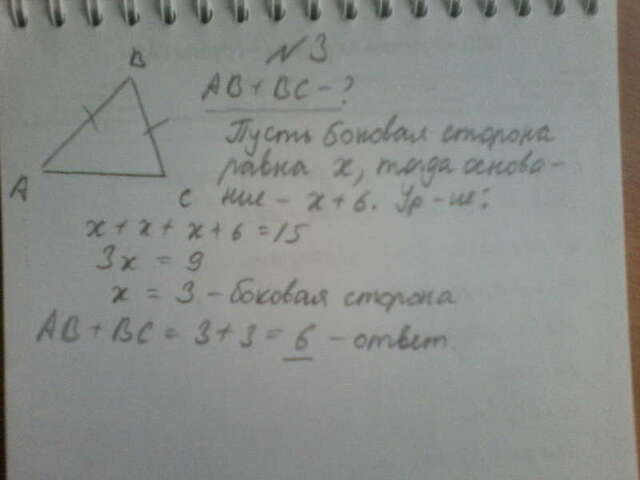 N 3
B
A
C
AB + BC - ?
Пусть боковая сторона
равна x, тогда основа-
ние - x + 6. Ур-ие:
x + x + x + 6 = 15
3x = 9
x = 3 - боковая сторона
AB + BC = 3 + 3 = 6 - ответ